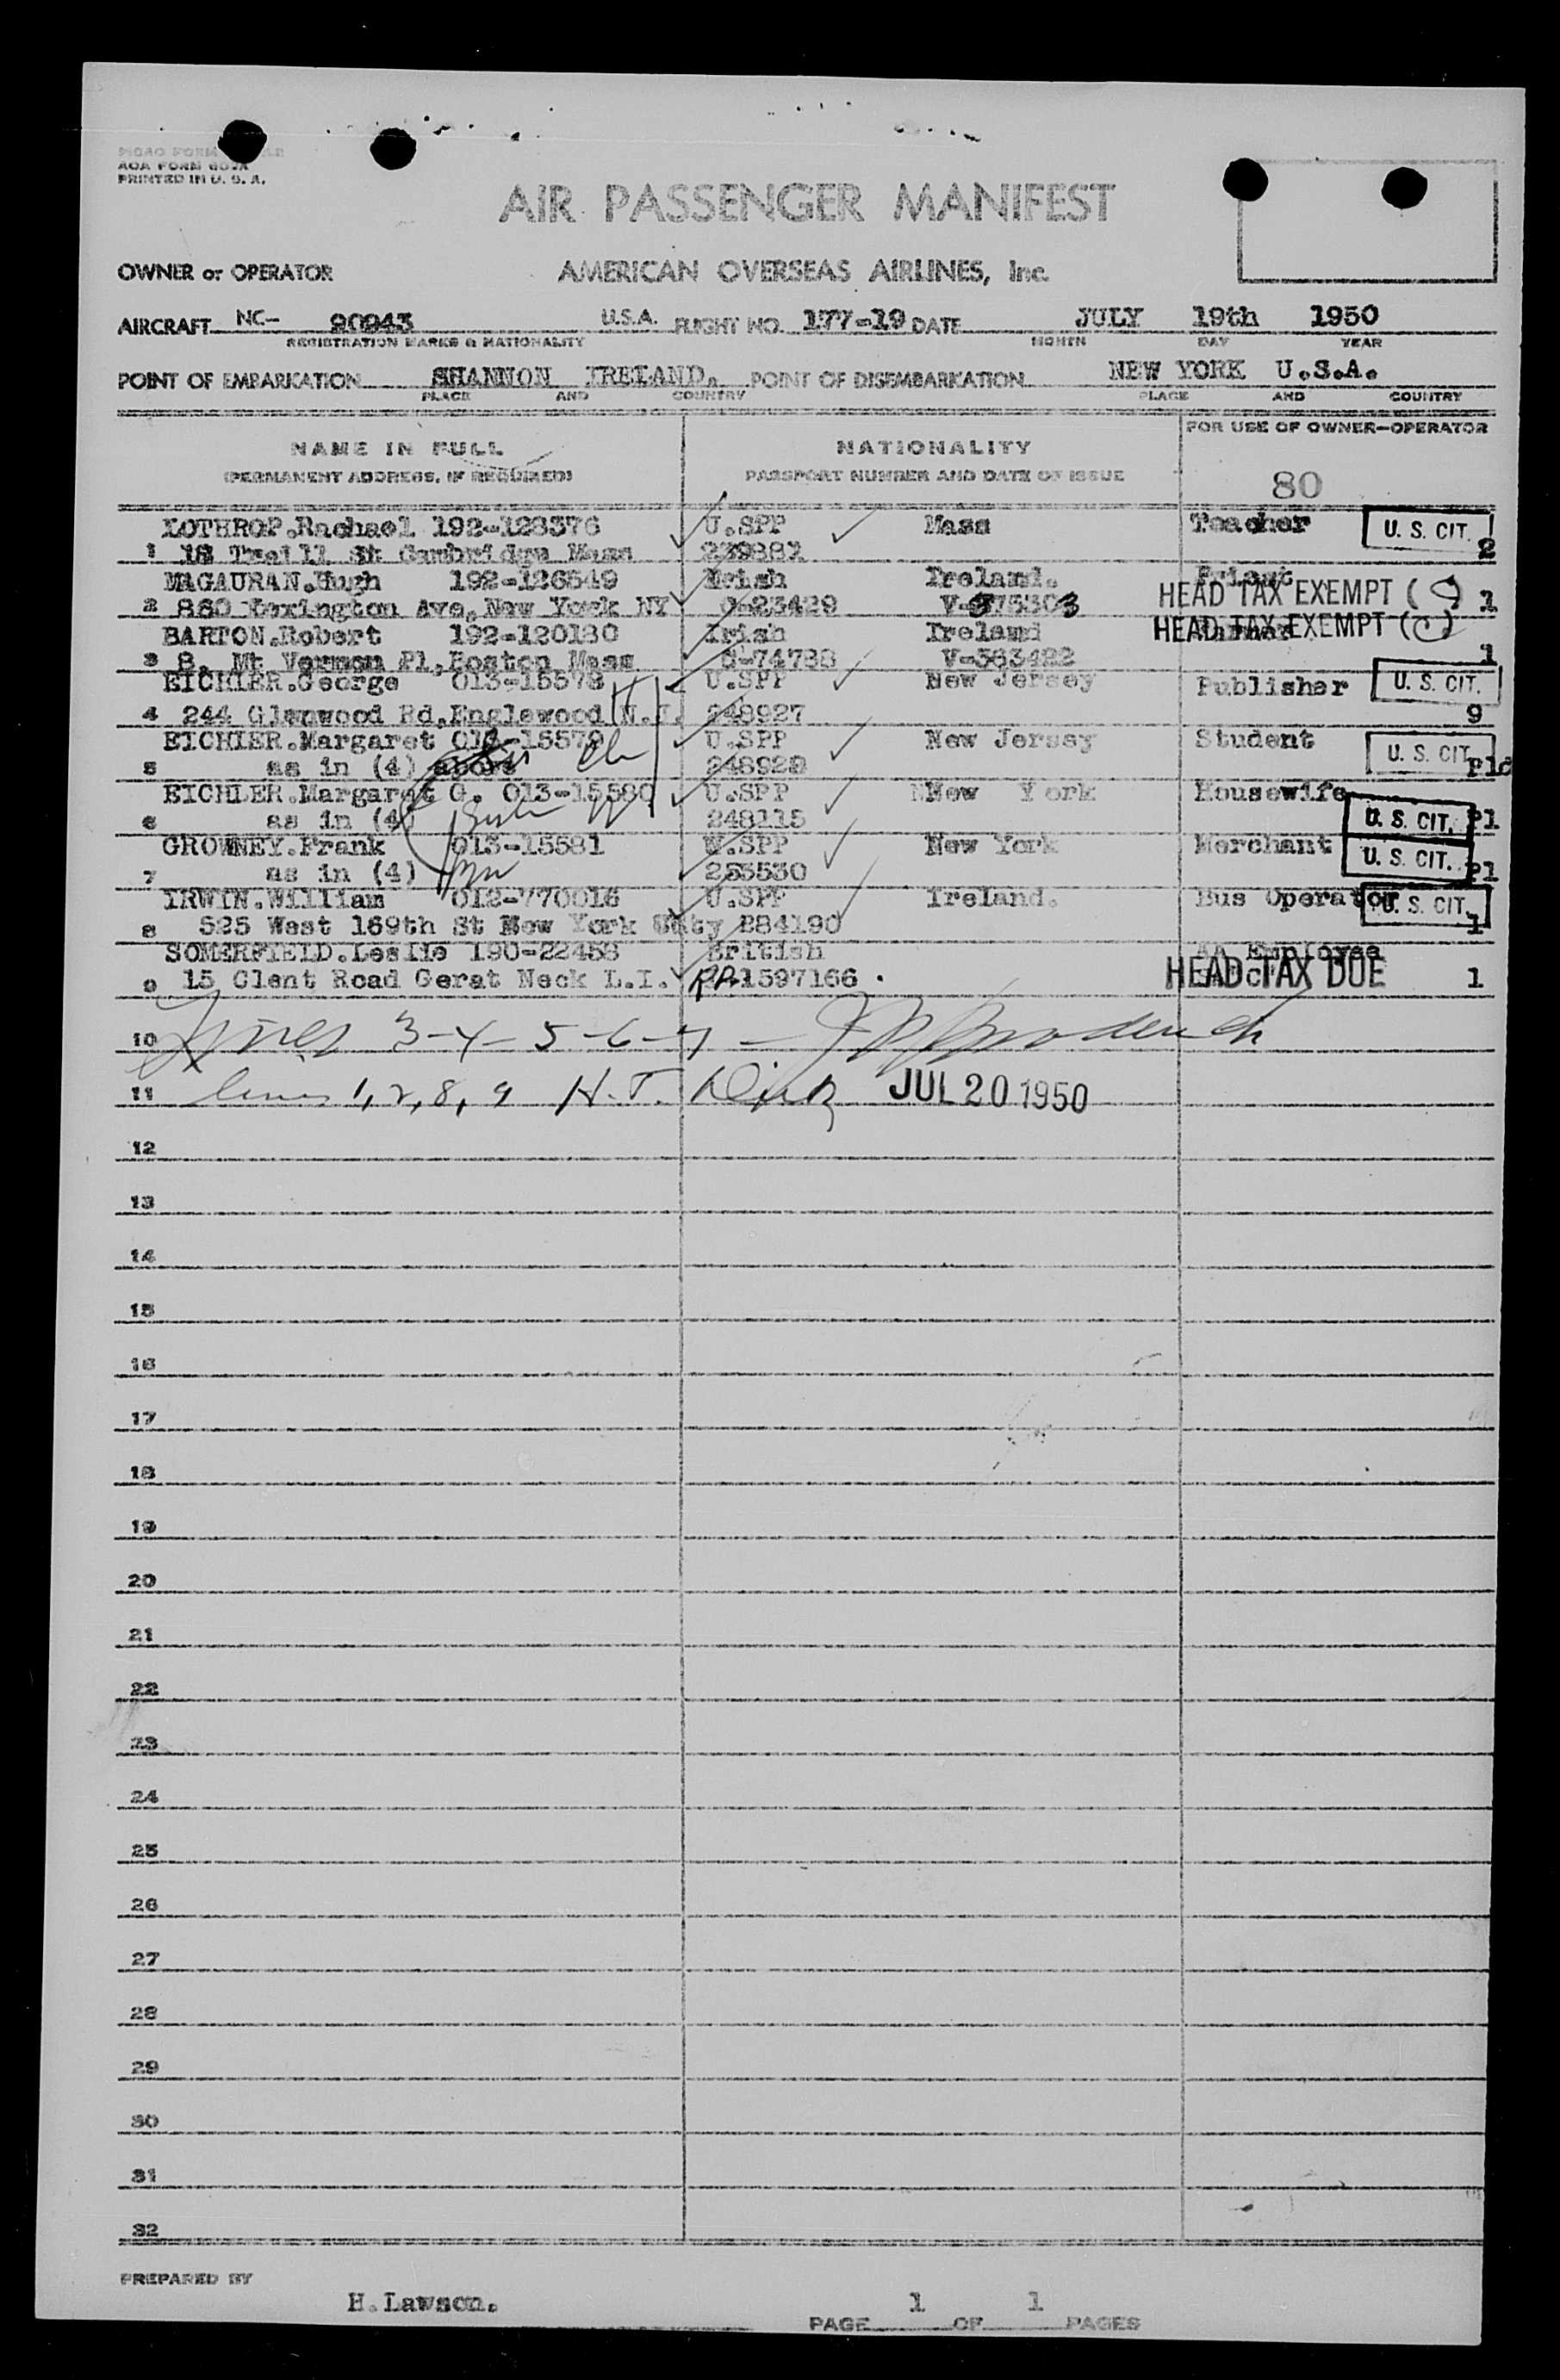 AOA FORM
PRINTED IN U. S. A.
AIR PASSENGER MANIFEST
OWNER or OPERATOR AMERICAN OVERSEAS AIRLINES, Inc.
AIRCRAFT NC- 90943 U.S.A. FLIGHT NO. 177-19 DATE JULY 19th 1950
REGISTRATION MARKS & NATIONALITY MONTH DAY YEAR
POINT OF EMBARKATION SHANNON IRELAND. POINT OF DISEMBARKATION NEW YORK U.S.A.
PLACE AND COUNTRY PLACE AND COUNTRY
NAME IN FULL NATIONALITY FOR USE OF OWNER-OPERATOR
(PERMANENT ADDRESS, IF REQUIRED) PASSPORT NUMBER AND DATE OF ISSUE 80
LOTHROP.Rachael 192-128376 U.SPP Mass Teacher U. S. CIT.
1 St Cambridge Mass 2
MAGAURAN.Hugh 192-126549 Irish Ireland. Priest
2 860 Lexington Ave,New York NY 0-23429 HEAD TAX EXEMPT (C) 1
BARTON.Robert 192-120130 Irish Ireland HEAD TAX EXEMPT (C)
3 8, Mt Vernon Pl,Boston Mass 74788 V-363422 1
EICHLER.George 013-15578 U.SPP New Jersey Publisher U. S. CIT.
4 244 Glenwood Rd,Englewood N.J. 248927 9
EICHLER.Margaret 013-15579 U.SPP New Jersey Student U. S. CIT.
5 as in (4) above 248928 P1d
EICHLER.Margaret G. 013-15580 U.SPP New York Housewife
6 as in (4) 248115 U. S. CIT. P1
GROWNEY.Frank 013-15581 U.SPP New York Merchant
7 as in (4) 253530 U. S. CIT. P1
IRWIN.William 012-770016 U.SPP Ireland. Bus Operator U. S. CIT.
8 525 West 169th St New York City 284190 1
SOMERFIELD.Leslie 190-22458 British AA Employee
9 15 Clent Road Gerat Neck L.I. 1597166 . HEAD TAX DUE 1
10 Lines 3-4-5-6-7 -
11 lines 1,2,8,9 H.T. JUL 20 1950
12
13
14
15
16
17
18
19
20
21
22
23
24
25
26
27
28
29
30
31
32
PREPARED BY
H.Lawson.
PAGE 1 OF 1 PAGES